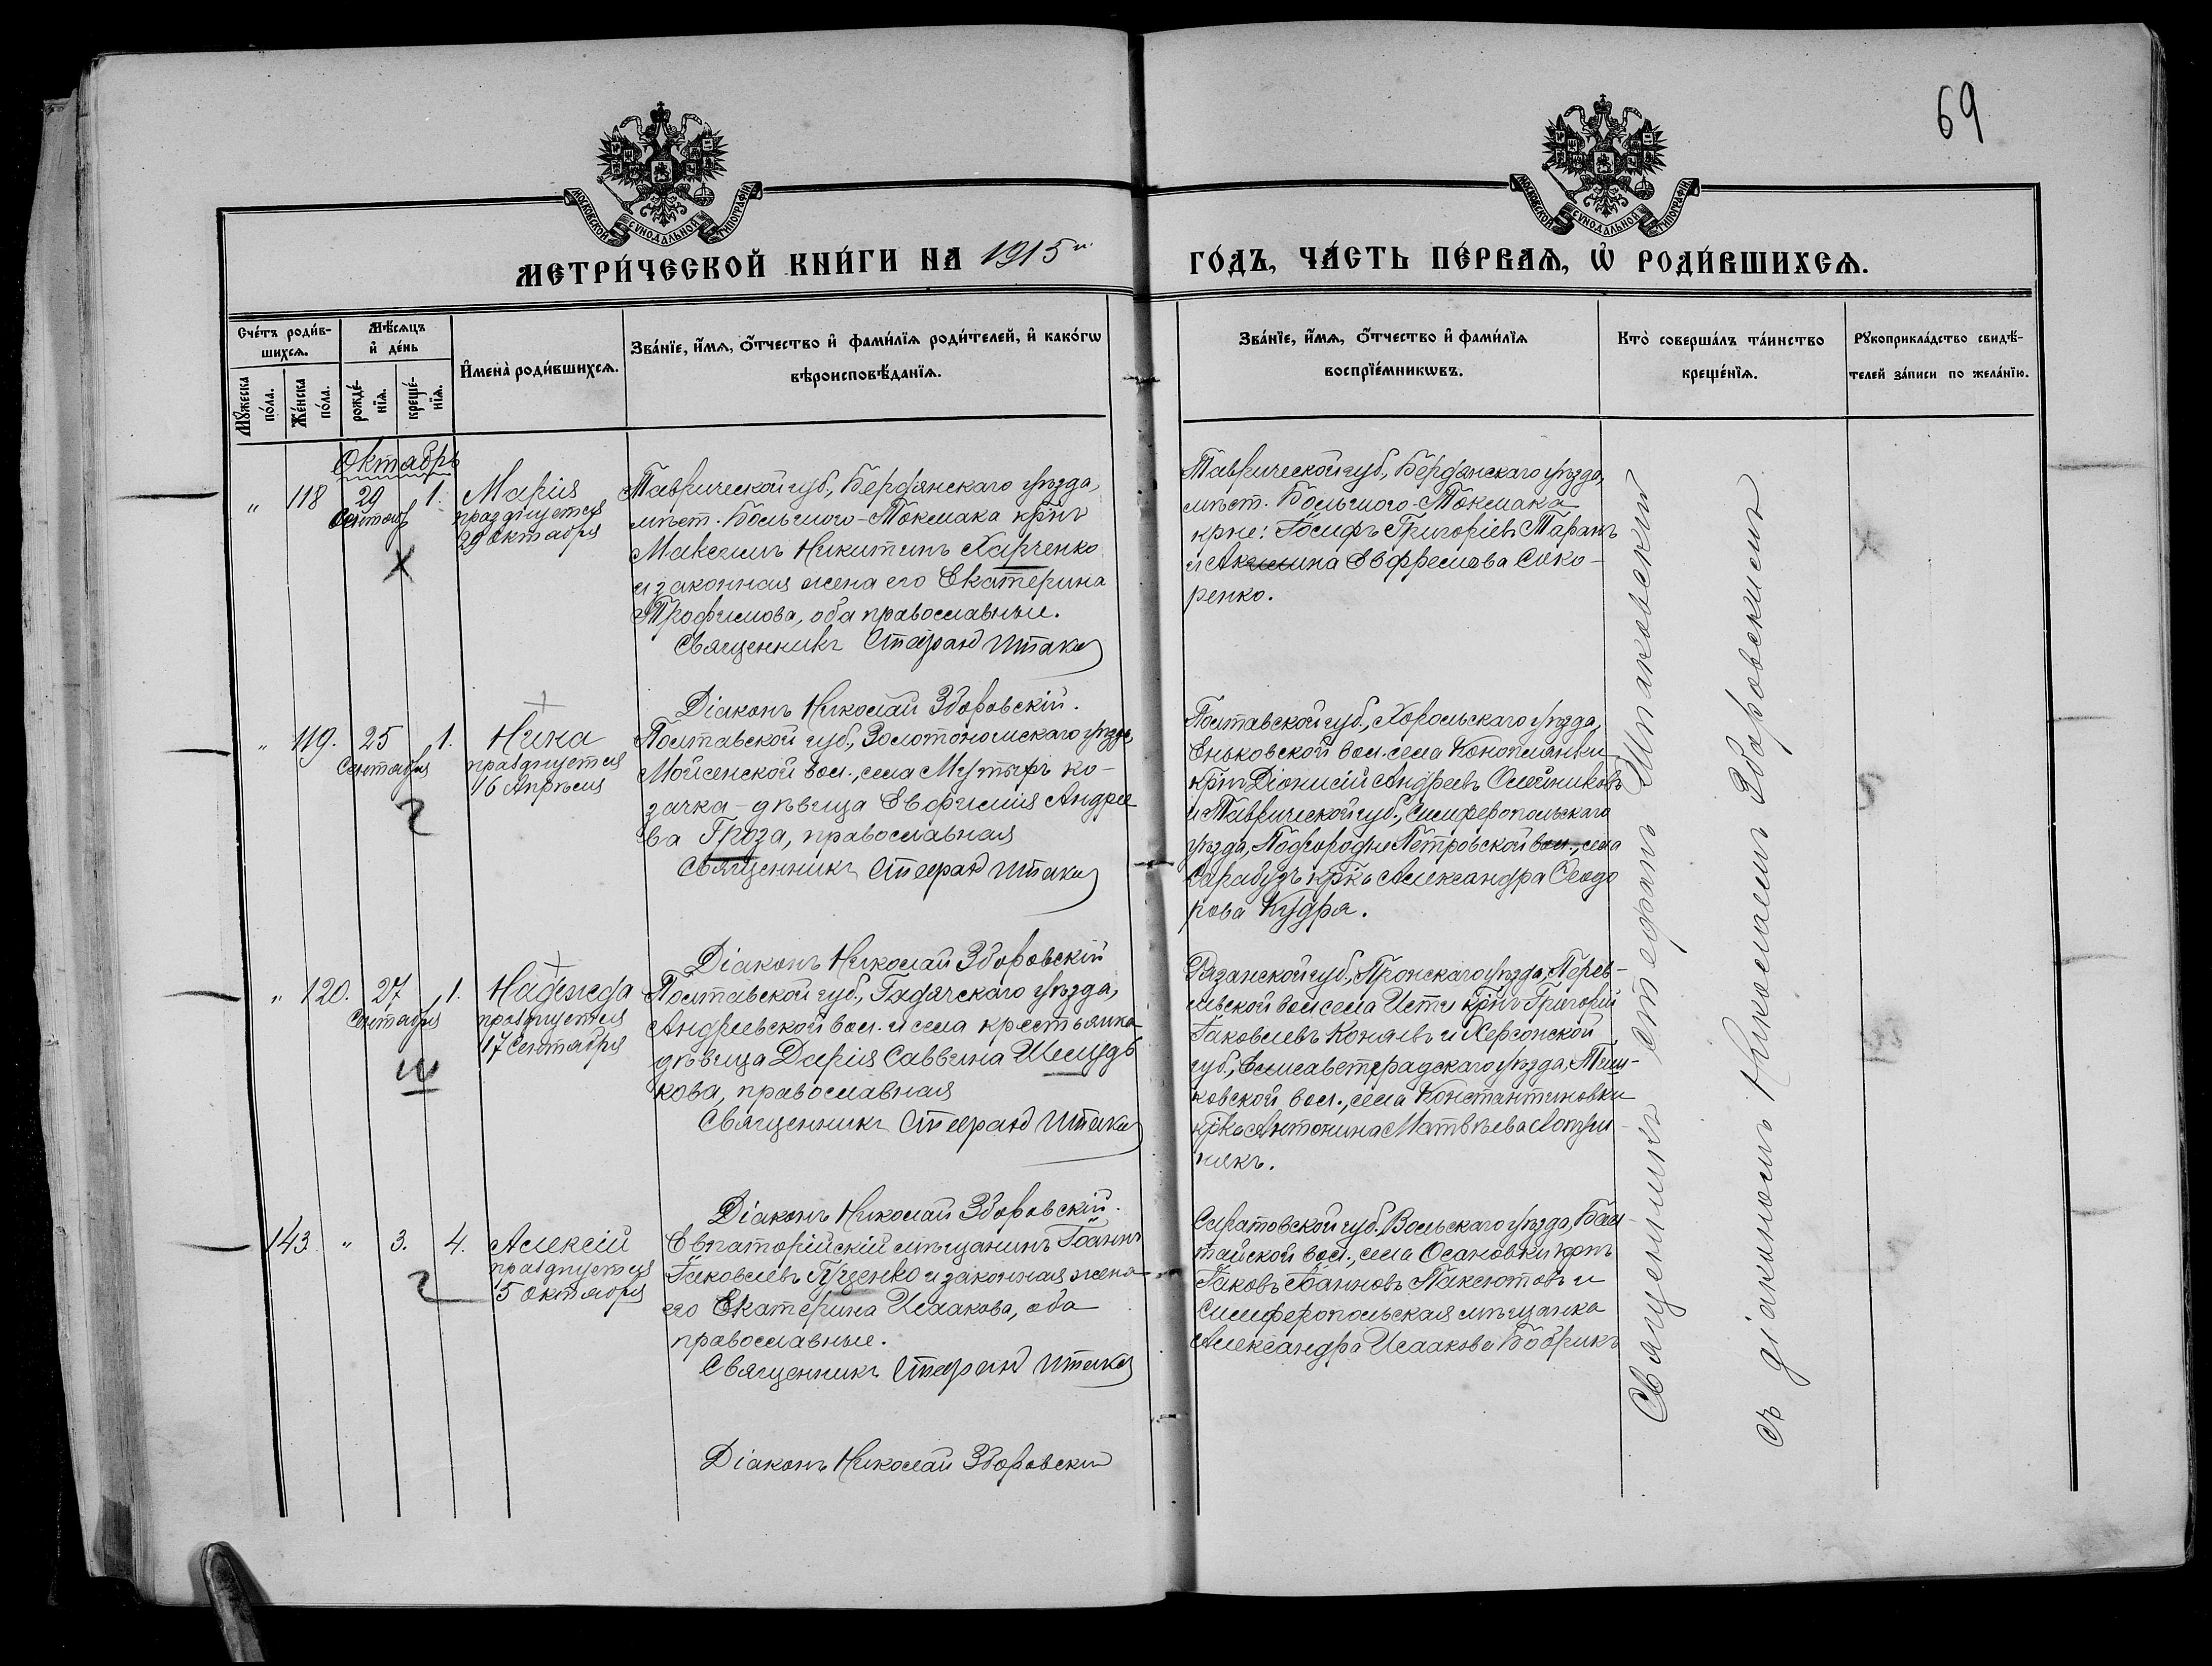 69
МОСКОВСКОЙ СѴНОДАЛЬНОЙ ТИПОГРАФІИ
МОСКОВСКОЙ СѴНОДАЛЬНОЙ ТИПОГРАФІИ
МЕТРИ́ЧЕСКОЙ КНИ́ГИ НА 1915й
ГО́ДЪ, ЧА́СТЬ ПЕ́РВАѦ, Ѡ҆ РОДИ́ВШИХСѦ.
Сче́тъ роди́в-
шихсѧ.
Мꙋжеска по́ла.
Же́нска по́ла.
Мѣ́сѧцъ
и҆ де́нь
рожде́-
нїѧ.
креще́-
нїѧ.
И҆мена̀ роди́вшихсѧ.
Зва́нїе, и҆́мѧ, ѻ҆́тчество и҆ фами́лїѧ роди́телей, и҆ како́гѡ
вѣроисповѣ́данїѧ.
Зва́нїе, и҆́мѧ, ѻ҆́тчество и҆ фами́лїѧ
воспрїе́мникѡвъ.
Кто̀ соверша́лъ та́инство
креще́нїѧ.
Рꙋкоприкла́дство свидѣ́-
телей за́писи по жела́нїю.
Октябрь
" 118 29 1.
Сентябр
Марія
празднуется
29 октября
Таврической губ., Бердянскаго уѣзда,
мѣст. Большого-Токмака крнъ
Максимъ Никитинъ Харченко
и законная жена его Екатерина
Трофимова, оба православные.
Священникъ Стефанъ Шпака
Діаконъ Николай Зборовскій.
Таврической губ., Бердянскаго уѣзда,
мѣст. Большого-Токмака
крне: Іосифъ Григоріевъ Таранъ
и Акилина Евфремова Сако-
ренко.
" 119. 25 1.
Сентября
Нина
празднуется
16 Апрѣля
Полтавской губ., Золотоношскаго уѣзда,
Мойсенской вол., села Мутыръ ко-
зачка-дѣвица Евфимія Андрее
ва Гроза, православная
Священникъ Стефанъ Шпака
Діаконъ Николай Зборовскій
Полтавской губ., Хорольскаго уѣзда,
Еньковской вол. села Коноплянки
крнъ Діонисій Андреевъ Олейниковъ
и Таврической губ., Симферопольскаго
уѣзда, Подгородне Петровской вол., села
Сарабузъ крка Александра Ѳеодо
рова Кудря.
" 120. 27 1.
Сентября
Надежда
празднуется
17 Сентября
Полтавской губ., Гадячскаго уѣзда,
Андреевской вол. и села крестьянка
дѣвица Дарія Саввина Шелудь
кова, православная
Священникъ Стефанъ Шпака
Діаконъ Николай Зборовскій.
Рязанской губ., Пронскаго уѣзда,
вол села Исти крнъ Григорій
Іаковлевъ Конаевъ и Херсонской
губ., Елисаветградскаго уѣзда, Тиш-
ковской вол., села Константиновки
крка Антонина Матвѣева
някъ.
143 " 3. 4.
Алексій
празднуется
5 октября
Евпаторійскій мѣщанинъ Іоаннъ
Іаковлевъ Луценко и законная жена
его Екатерина Исаакова, оба
православные.
Священникъ Стефанъ Шпака
Діаконъ Николай Зборовскій
Саратовской губ. Вольскаго уѣзда, Бал-
тайской вол., села Осановки крнъ
Іаковъ Іоанновъ Паксютовъ и
Симферопольская мѣщанка
Александра Исаакова Бобрикъ
Священникъ Стефанъ Шпаковскій
съ діакономъ Николаемъ Зборовскимъ